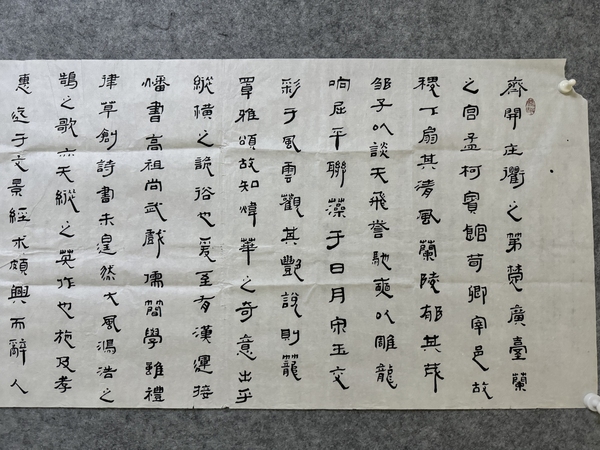 齊開庄衢之第楚廣臺蘭
之宮孟柯賓館荀卿宰邑故
稷下扇其清風蘭陵郁其茂
邹子以談天飛誉馳奭以雕龍
响屈平聯藻于日月宋玉交
彩于風雲觀其艷說則籠
罩雅頌故知煒華之奇意出乎
縱横之詭俗也爰至有漢運接
幡書高祖尚武戲儒簡學雖禮
律草創詩書未遑然大風鴻浩之
鵠之歌亦天縱之英作也施及孝
惠迄于文景經术頗興而辭人